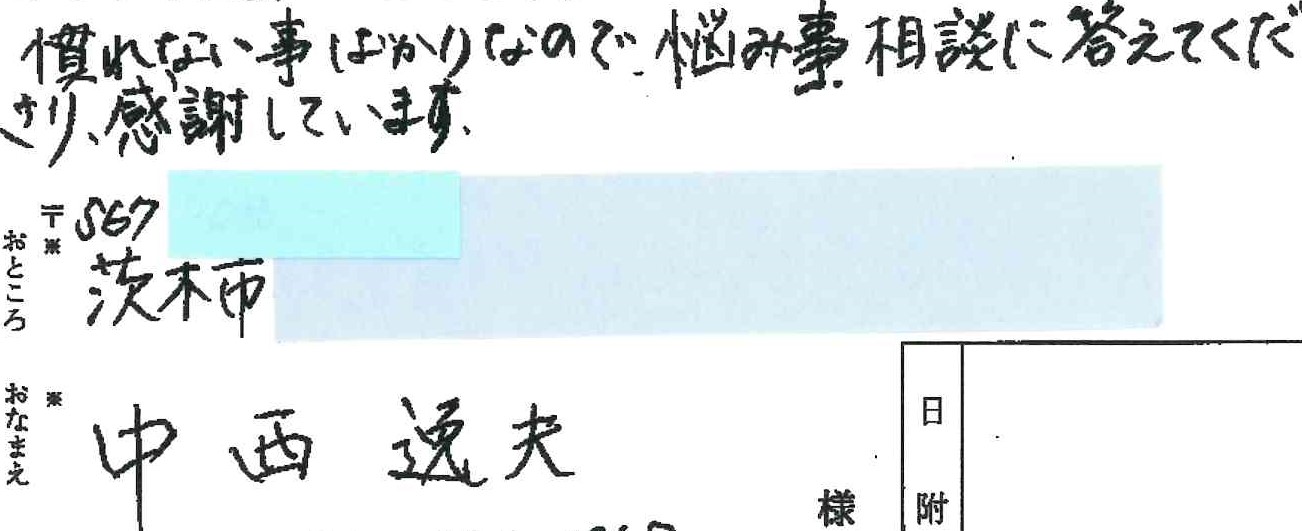 慣れない事ばかりなので、悩み事相談に答えてくだ
さり、感謝しています。
〒567
※
おところ
茨木市
おなまえ
※
中西逸夫
様
日附